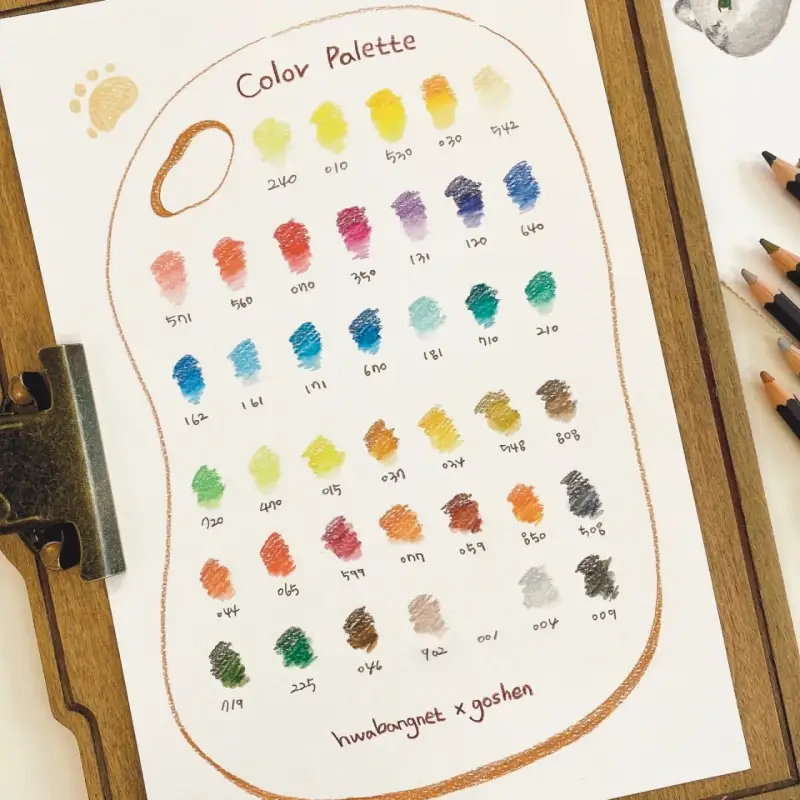 Color Palette
240 010 530 030 542
571 560 070 350 131 120 640
162 161 171 670 181 710 210
720 470 015 037 034 548 808
044 065 599 077 059 850 508
719 225 046 902 001 004 009
hwabangnet x goshen